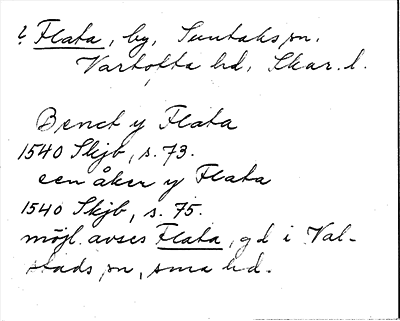 ? Flata, by, Suntaks sn,
Vartofta hd, Skar. l.
Benct y Flata
1540 Skjb, s. 73.
een åker y Flata
1540 Skjb, s. 75.
möjl. avses Flata, gd i Val-
stads sn, sma hd.